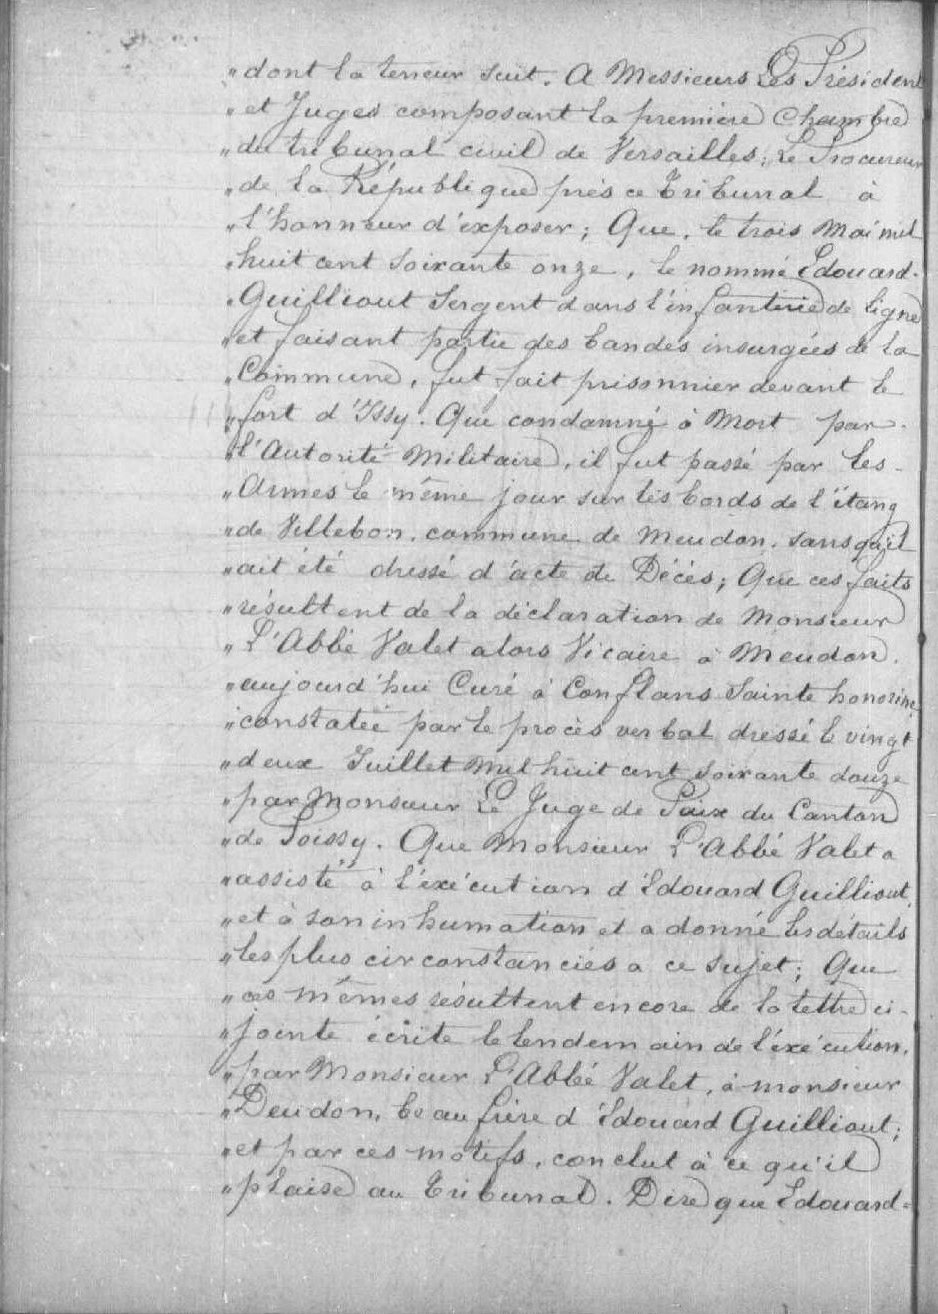 "dont la teneur suit. A Messieurs Les Président
"et Juges composant la première Chambre
"du tribunal civil de Versailles; Le Procureur
"de la République près ce Tribunal à
"l'honneur d'exposer; Que, le trois Mai mil
"huit cent soixante onze, le nommé Edouard-
"Guilliout Sergent dans l'infanterie de ligne
"et faisant partie des bandes insurgées de la
"Commune, fut fait prisonnier devant le
"fort d'Issy. Que condamné à Mort par
"l'Autorité Militaire, il fut passé par les-
"Armes le même jour sur les bords de l'étang
"de Villebon, commune de Meudon, sans qu'il
"ait été dressé d'acte de Décès; Que ces faits
"résultent de la déclaration de Monsieur
"L'Abbé Valet alors Vicaire à Meudon,
"aujourd'hui Curé à Conflans Sainte honorine,
"constatée par le procès verbal dressé le vingt
"deux Juillet Mil huit cent soixante douze
"par Monsieur Le Juge de Paix du Canton
"de Poissy. Que Monsieur L'Abbé Valet a
"assisté à l'exécution d'Edouard Guilliout,
"et à son inhumation et a donné les détails
"les plus circonstanciés a ce sujet; Que
"ces mêmes résultent encore de la lettre ci-
"jointe écrite le lendemain de l'exécution,
"par Monsieur L'Abbé Valet, à monsieur
"Deudon, beau frère d'Edouard Guilliout;
"et par ces motifs, conclut à ce qu'il
"plaise au Tribunal. Dire que Edouard=